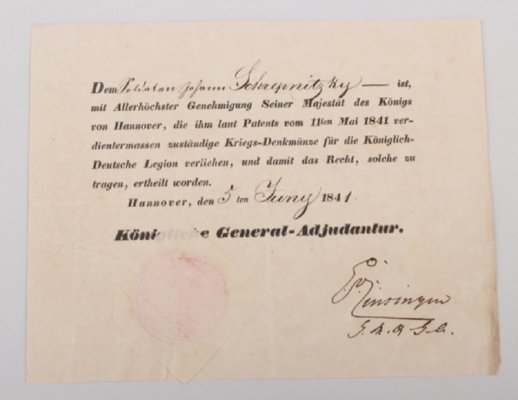 Dem Soldaten Johann Schrepnitzky — ist,
mit Allerhöchster Genehmigung Seiner Majestät des Königs
von Hannover, die ihm laut Patents vom 11ten Mai 1841 ver-
dientermassen zuständige Kriegs-Denkmünze für die Königlich-
Deutsche Legion verliehen, und damit das Recht, solche zu
tragen, ertheilt worden.
Hannover, den 5 ten Juny 1841.
Königliche General-Adjudantur.